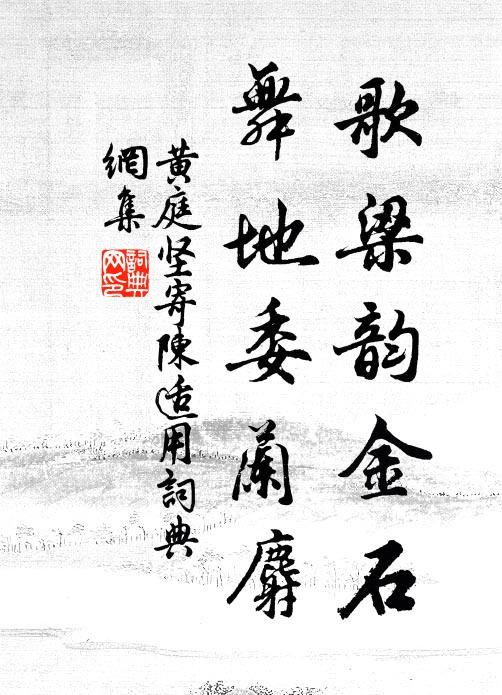 歌梁韵金石
舞地委蘭麝
黄庭坚寄陳适用詞典
網集
詞典
网印